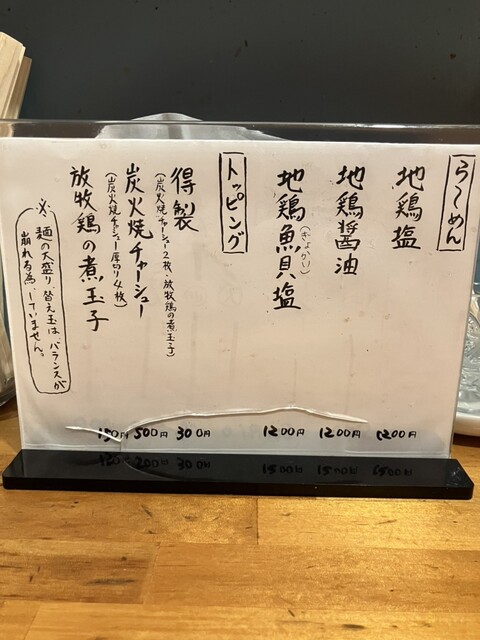 らーめん
地鶏塩 1200円
地鶏醤油 1200円
地鶏魚貝(ぎょかい)塩 1200円
トッピング
得製 300円
(炭火焼チャーシュー2枚・放牧鶏の煮玉子)
炭火焼チャーシュー 500円
(炭火焼チャーシュー厚切り4枚)
放牧鶏の煮玉子 150円
※麺の大盛り、替え玉は、バランスが
崩れる為、していません。